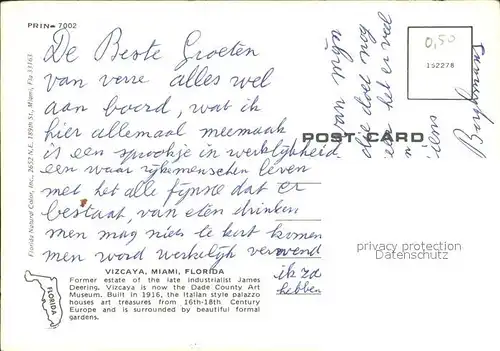 PRIN- 7002
De Beste Groeten
van verre alles wel
aan boord, wat ik
hier allemaal meemaak
is een sprookje in werkelijkheid
een waar rijkemenschen leven
met het alle fijnste dat er
bestaat, van eten drinken
men mag niets te kort komen
men word werkelijk verwend
ik zo
hebben
van mijn
die doet nog
er veel
0,50
192278
POST CARD
Florida Natural Color, Inc., 2652 N.E. 189th St., Miami, Fla 33163
FLORIDA
VIZCAYA, MIAMI, FLORIDA
Former estate of the late industrialist James
Deering. Vizcaya is now the Dade County Art
Museum. Built in 1916, the Italian style palazzo
houses art treasures from 16th-18th Century
Europe and is surrounded by beautiful formal
gardens.
privacy protection
Datenschutz